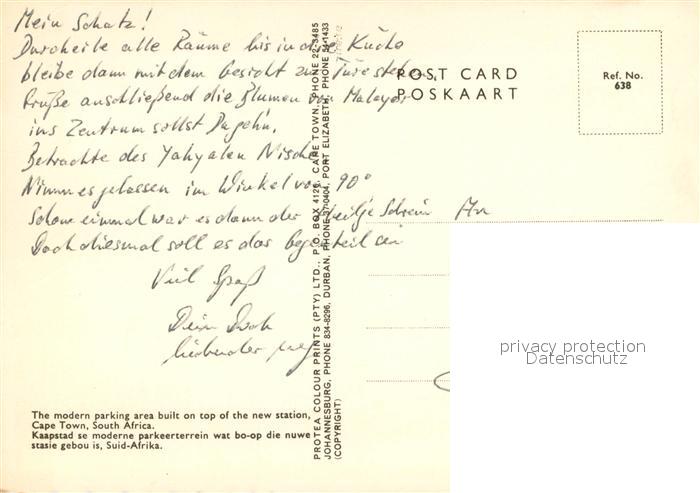 Mein Schatz!
Durcheile alle Räume bis in die Küche
bleibe dann mit dem Gesicht zur Türe stehen.
Grüße anschließend die Blumen von Malaya
ins Zentrum sollst Du gehn,
Betrachte des Nische
Nimm es gelassen im Winkel von 90°
Schon einmal war es dann der Schrein An
Doch diesmal soll es das Gegenteil sein
Viel Spaß
Dein Dich
liebender
POST CARD
POSKAART
Ref. No.
638
PROTEA COLOUR PRINTS (PTY) LTD., P.O. BOX 4126, CAPE TOWN, PHONE 22-3485
JOHANNESBURG, PHONE 834-8296, DURBAN, PHONE 37-0404, PORT ELIZABETH, PHONE 54-1433
(COPYRIGHT)
privacy protection
Datenschutz
The modern parking area built on top of the new station,
Cape Town, South Africa.
Kaapstad se moderne parkeerterrein wat bo-op die nuwe
stasie gebou is, Suid-Afrika.